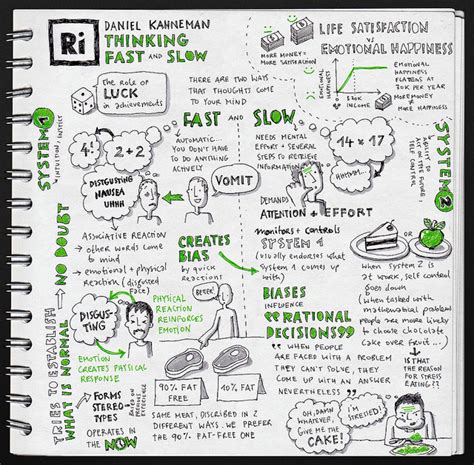 Ri
DANIEL KAHNEMAN
THINKING
FAST AND SLOW
LIFE SATISFACTION
VS
EMOTIONAL HAPPINESS
MORE MONEY =
MORE SATISFACTION
EMOTIONAL
HAPPINESS
INCOME
EMOTIONAL
HAPPINESS
PER YEAR
MORE MONEY ≠
MORE HAPPINESS
the role of
LUCK
in achievements
THERE ARE TWO WAYS
THAT THOUGHTS COME
TO YOUR MIND
FAST AND SLOW
SYSTEM 1
INTUITION
4!
2+2
AUTOMATIC...
YOU DON'T HAVE
TO DO ANYTHING
ACTIVELY
DISGUSTING
NAUSEA
UHHH
VOMIT
NEEDS MENTAL
EFFORT + SEVERAL
STEPS TO RETRIEVE
INFORMATION
14 x 17
HHMMM...
SYSTEM 2
SELF CONTROL
DEMANDS
ATTENTION + EFFORT
monitors + controls
SYSTEM 1
(usually endorses what
System 1 comes up
with)
ASSOCIATIVE REACTION
→ other words come
to mind
→ emotional + physical
reaction (disgusted
face)
CREATES
BIAS
by quick
reactions
or
when system 2 is
at work, self control
goes down
when tasked with
mathematical problem
people are more likely
to choose chocolate
cake over fruit...
→ IS THAT
THE REASON
FOR STRESS
EATING??
NO DOUBT
TRIES TO ESTABLISH
WHAT IS NORMAL
DISGUSTING
PHYSICAL
REACTION
REINFORCES
EMOTION
EMOTION
CREATES PHYSICAL
RESPONSE
BETTER!
BIASES
INFLUENCE
"RATIONAL
DECISIONS"
"WHEN PEOPLE
ARE FACED WITH A PROBLEM
THEY CAN'T SOLVE, THEY
COME UP WITH AN ANSWER
NEVERTHELESS"
→ FORMS
STEREOTYPES
OPERATES IN
THE NOW
90% FAT
FREE
10% FAT
SAME MEAT, DISCRIBED IN 2
DIFFERENT WAYS. WE PREFER
THE 90% FAT-FREE ONE
OH, DAMN
WHATEVER,
GIVE ME THE
CAKE!
I'M
STRESSED!